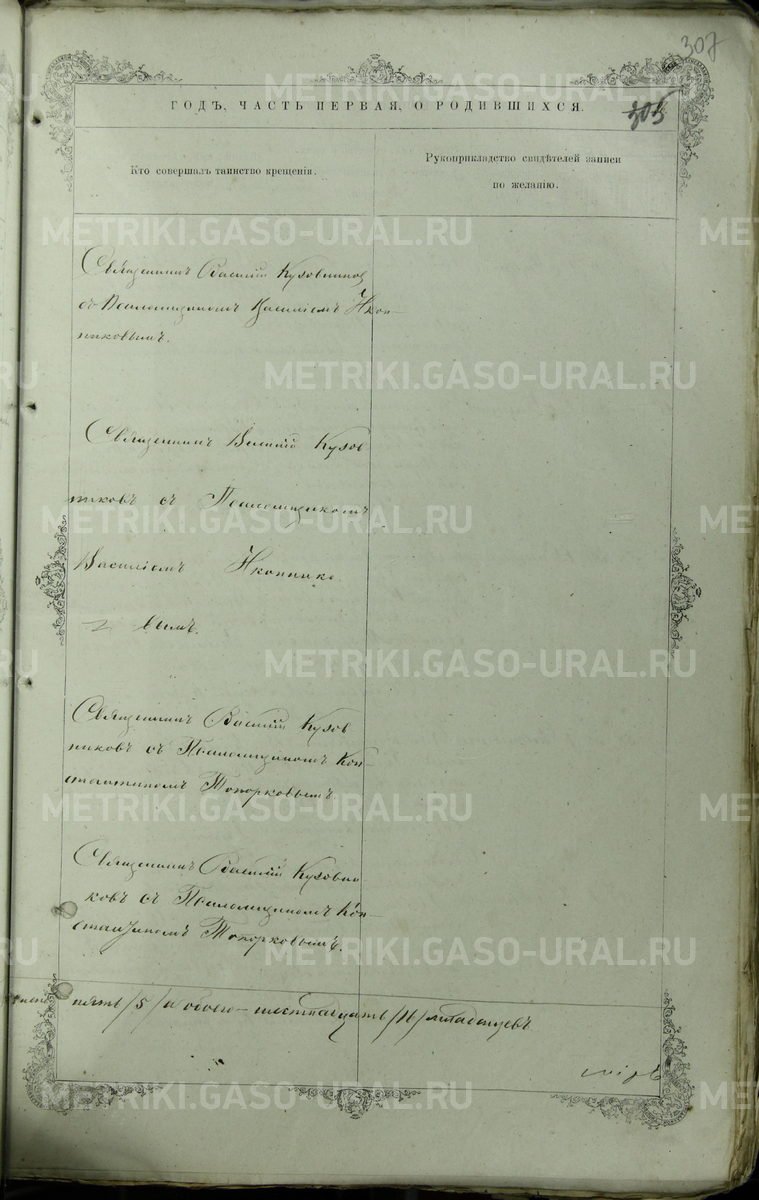 307
305
ГОДЪ, ЧАСТЬ ПЕРВАЯ, О РОДИВШИХСЯ.
Кто совершалъ таинство крещенія.
Рукоприкладство свидѣтелей записи
по желанію.
Священникъ Василій Кузовников
съ Псаломщикомъ Василіемъ Икон-
никовымъ.
Священникъ Василій Кузов
никовъ съ Псаломщикомъ
Василіемъ Иконнико
вымъ.
Священникъ Василій Кузов
никовъ съ Псаломщикомъ Кон-
стантиномъ Топорковымъ
Священникъ Василій Кузовни-
ковъ съ Псаломщикомъ Кон-
стантиномъ Топорковымъ.
пять /5/ а обоего – шестнадцать младенцевъ
METRIKI.GASO-URAL.RU